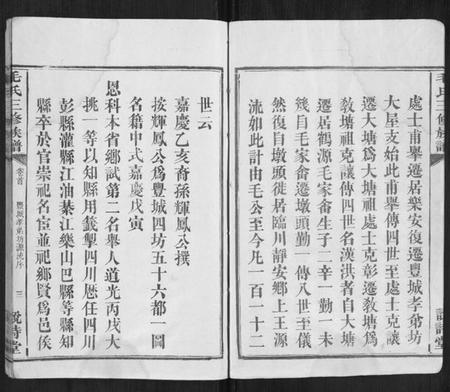 毛氏三修族譜
處士甫舉遷居樂安復遷豐城孝弟坊
大屋支始此甫舉傳四世至處士克讓
遷大塘爲大塘祖處士克彰遷敎塘爲
敎塘祖克讓傳四世名漢洪者自大塘
遷居鶴源毛家畬生子二幸一勤一未
幾自毛家畬遷墩頭勤一傳入世至儀
然復自墩頭徙居臨川靜安鄉上王源
流如此計由毛公至今凡一百一十二
世云
嘉慶乙亥裔孫輝鳳公撰
按輝鳳公爲豐城四坊五十六都一圖
名籍中式嘉慶戊寅
恩科本省鄉試第二名舉人道光丙戌大
挑一等以知縣用籤掣四川歷任四川
彭縣灌縣江油綦江樂山巴縣等縣知
縣卒於官崇祀名宦並祀鄉賢爲邑侯
毛氏三修族譜
卷首
豐城孝弟坊源流序
三
說詩堂